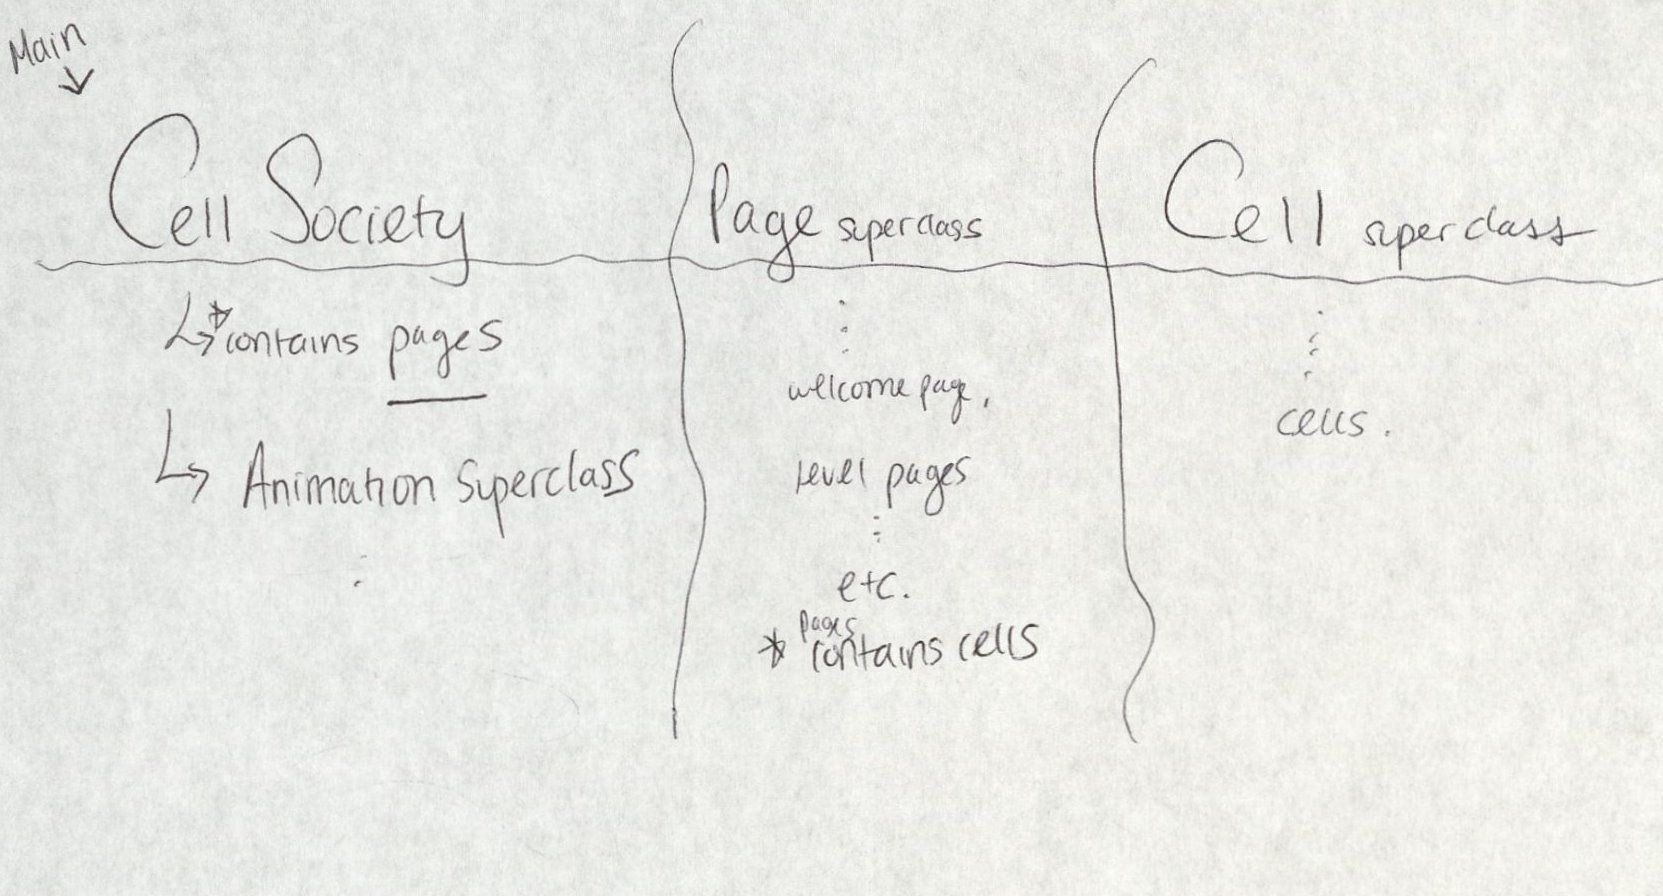 Main
Cell Society
*contains pages
Animation Superclass
Page superclass
welcome page,
level pages
etc.
pages
* contains cells
Cell superclass
cells.